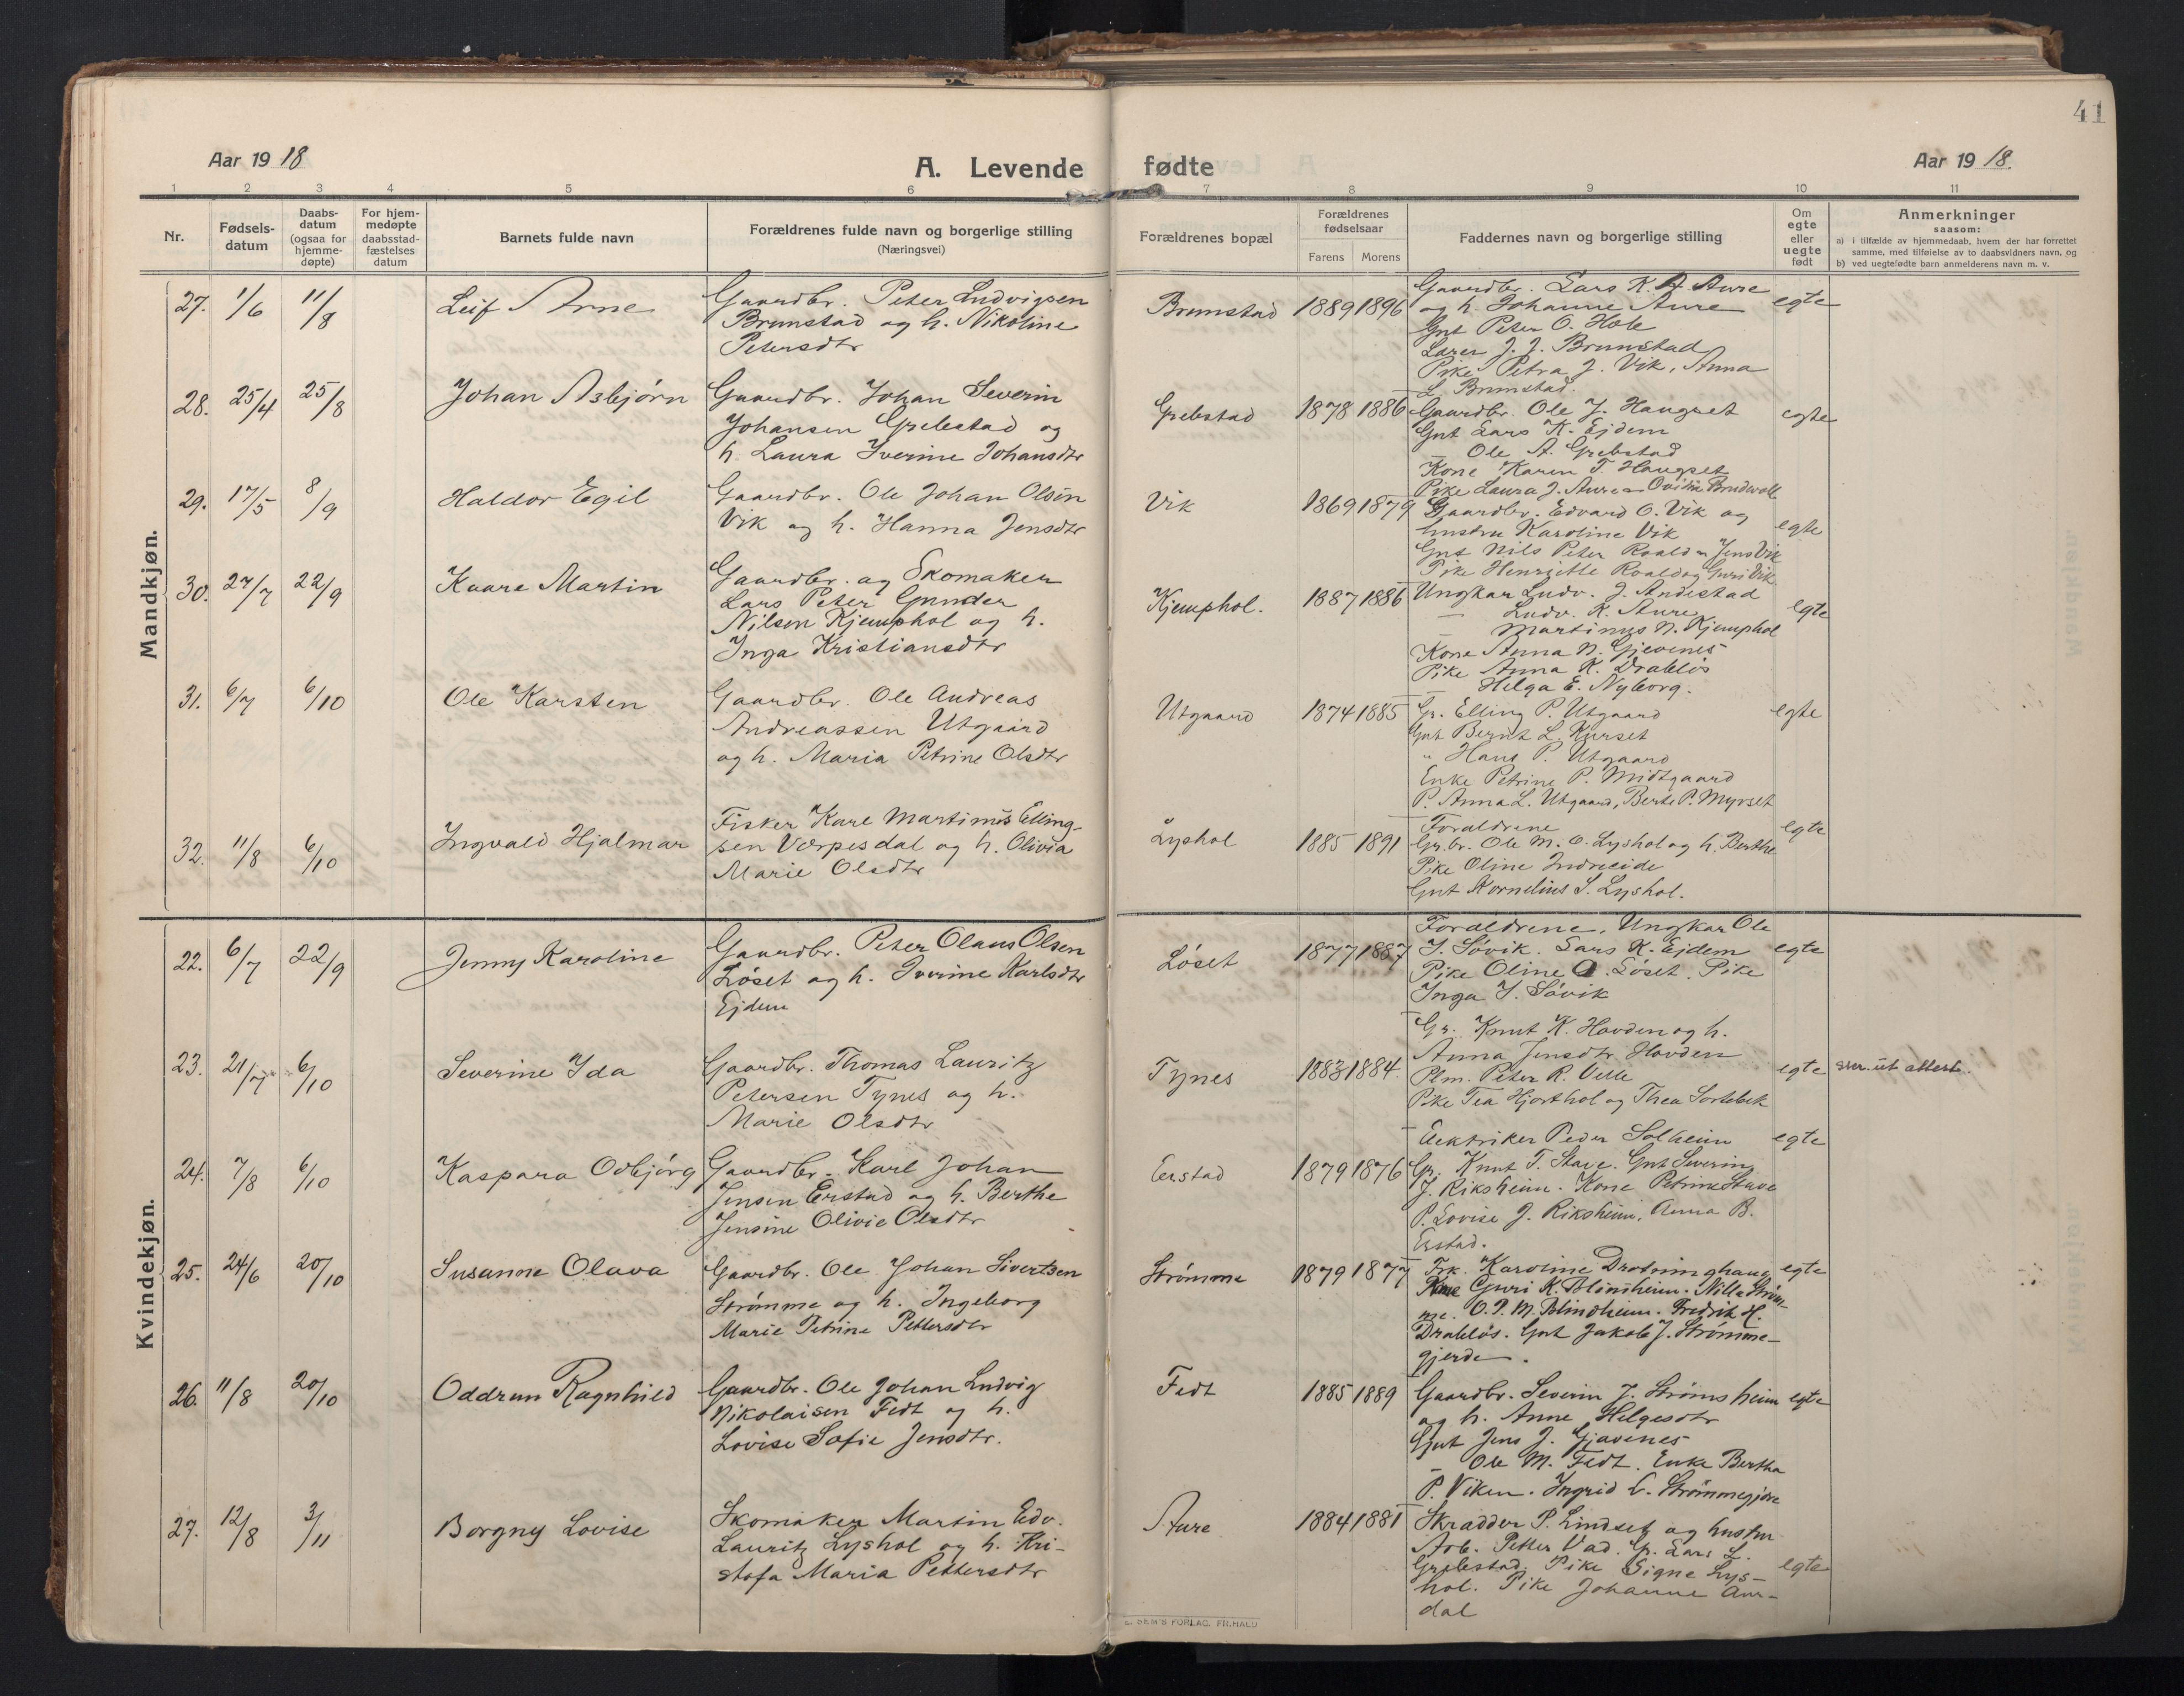 41
Aar 1918
A. Levende fødte
Aar 1918.
1 2 3 4 5 6 7 8 9 10 11
Nr.
Fødsels-
datum
Daabs-
datum
(ogsaa for
hjemme-
døpte)
For hjem-
medøpte
daabsstad-
fæstelses
datum
Barnets fulde navn
Forældrenes fulde navn og borgerlige stilling
(Næringsvei)
Forældrenes bopæl
Forældrenes
fødselsaar
Farens Morens
Faddernes navn og borgerlige stilling
Om
egte
eller
uegte
født
Anmerkninger
saasom:
a) i tilfælde av hjemmedaab, hvem der har forrettet
samme, med tilføielse av to daabsvidners navn, og
b) ved uegtefødte barn anmelderens navn m. v.
Mandkjøn.
27. 1/6 11/8 Leif Arne
Gaardbr. Peter Ludvigsen
Brunstad og h. Nikoline
Petersdtr
Brunstad 1889 1896
Gaardbr. Lars K. Aure
og h. Johanne Aure
Gut Peter O. Hole
Lærer J. J. Brunstad
Pike Petra J. Vik, Anna
L. Brunstad.
egte
28. 25/4 25/8 Johan Asbjørn
Gaardbr. Johan Severin
Johansen Grebstad og
h. Laura Iverine Johansdtr
Grebstad 1878 1886
Gaardbr. Ole J. Haugset
Gut Lars K. Ejdem
Ole A. Grebstad
Kone Karen T. Haugset
Pike Laura J. Aure
egte
29. 17/5 8/9 Haldor Egil
Gaardbr. Ole Johan Olsen
Vik og h. Hanna Jensdtr
Vik 1869 1879
Gaardbr. Edvard O. Vik og
hustru Karoline Vik
Gut Nils Peter Roald " Jens Vik
Pike Henriette Roald og Guri Vik
egte
30. 27/7 22/9 Kaare Martin
Gaardbr. og Skomaker
Lars Peter Gunder
Nilsen Kjemphol og h.
Inga Kristiansdtr
Kjemphol. 1887 1886
Ungkar Ludv. J. Andestad
— Ludv. K. Aure
— Martinus N. Kjemphol
Kone Anna N. Gjevenes
Pike Anna K. Drabløs
— Helga E. Nyborg.
egte
31. 6/7 6/10 Ole Karsten
Gaardbr. Ole Andreas
Andreassen Utgaard
og h. Maria Petrine Olsdtr
Utgaard 1874 1885
Gr. Elling P. Utgaard
Gut Bernt L. Kurset
" Hans P. Utgaard
Enke Petrine P. Midtgaard
P. Anna L. Utgaard, Berte P. Myrset
egte
32. 11/8 6/10 Ingvald Hjalmar
Fisker Karl Martinus Elling-
sen Værpesdal og h. Olivia
Marie Olsdtr
Lyshol 1885 1891
Forældrene
Gr.br. Ole M. O. Lyshol og h. Berthe
Pike Oline Indreeide
Gut Kornelius S. Lyshol.
egte
Kvindekjøn.
22. 6/7 22/9 Jenny Karoline
Gaardbr. Peter Olaus Olsen
Løset og h. Iverine Karlsdtr
Ejdem
Løset 1877 1887
Forældrene, Ungkar Ole
I. Søvik. Lars K. Ejdem
Pike Oline O. Løset. Pike
Inga I. Søvik
egte
23. 21/7 6/10 Severine Ida
Gaardbr. Thomas Lauritz
Petersen Tynes og h.
Marie Olsdtr
Tynes 1883 1884
Gr. Knut K. Hovden og h.
Anna Jensdtr Hovden
Plm. Peter R. Velle
Pike Tea Hjorthol og Thea Sortebek
egte
ut attest.
24. 7/8 6/10 Kaspara Odbjörg
Gaardbr. Karl Johan
Jensen Erstad og h. Berthe
Jensine Olivie Olsdtr
Erstad 1879 1876
Elektriker Peder Solheim
Gr. Knut T. Stave. Gut Severin
J. Riksheim. Kone Petrine Stave
P. Lovise J. Riksheim, Anna B.
Erstad.
egte
25. 24/6 20/10 Susanne Olava
Gaardbr. Ole Johan Sivertsen
Strömme og h. Ingeborg
Marie Petrine Pettersdtr
Strömme 1879 1877
Frk. Karoline Drotninghaug
Kone Guri K. Blindheim. Nilla Ström-
me. O. P. M. Blindheim. Fredrik H.
Drabløs. Gut Jakob J. Strömme-
gjerde.
egte
26. 11/8 20/10 Oddrun Ragnhild
Gaardbr. Ole Johan Ludvig
Nikolaisen Fedt og h.
Lovise Sofie Jensdtr.
Fedt 1885 1889
Gaardbr. Severin J. Strömsheim
og h. Anne Helgesdtr
Gut Jens J. Gjævenes
— Ole M. Fedt. Enke Bertha
P. Viken. Ingrid L. Strömmegjære
egte
27. 12/8 3/11 Borgny Lovise
Skomaker Martin Edv.
Lauritz Lyshol og h. Kri-
stofa Maria Pettersdtr
Aure 1884 1881
Skrædder P. Lindset og hustru
Arb. Petter Vad. Gr. Lars L.
Grebstad. Pike Signe Lys-
hol. Pike Johanne Aur-
dal
egte
SEM'S FORLAG. FR.HALD